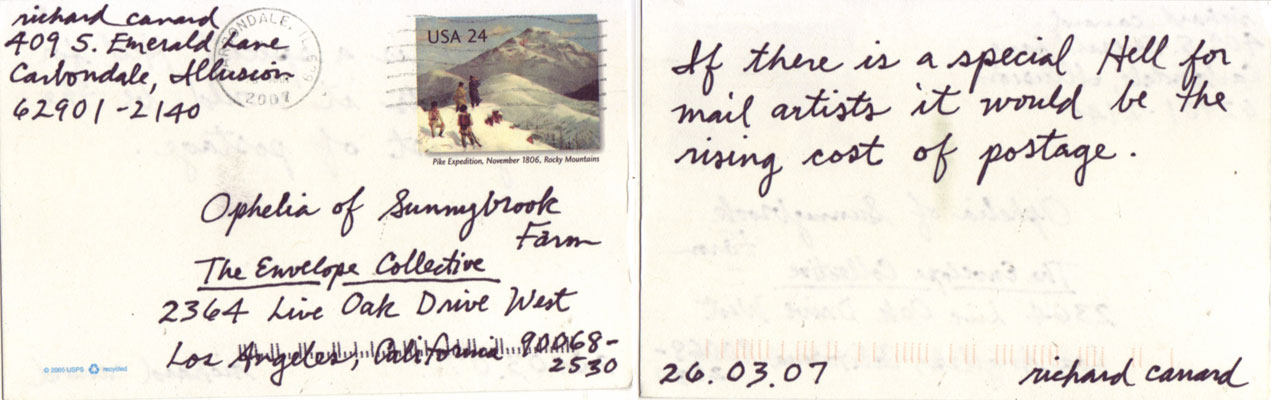 richard canard
409 S. Emerald Lane
Carbondale, Illusion
62901-2140
CARBONDALE, IL 629
2007
USA 24
Pike Expedition, November 1806, Rocky Mountains
Ophelia of Sunnybrook
Farm
The Envelope Collective
2364 Live Oak Drive West
Los Angeles, California 90068-
2530
© 2005 USPS recycled
If there is a special Hell for
mail artists it would be the
rising cost of postage.
26.03.07 richard canard